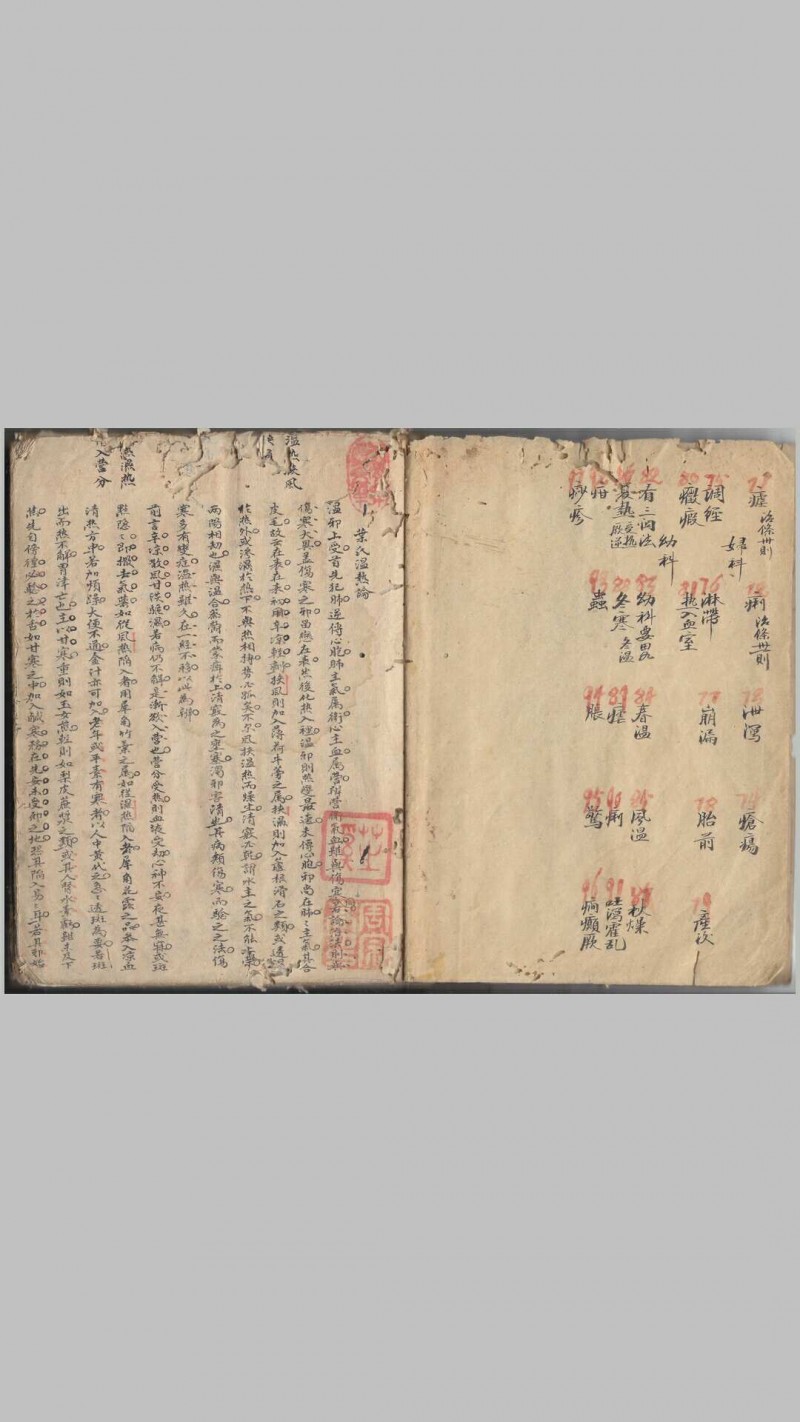 瘧 治條卅則 痢 治條卅則 泄瀉 瘡瘍
婦科
調經 淋帶 77 崩漏 78 胎前 產後
80 癥瘕 81 热入血室
幼科
幼科要畧 84 春温 風温
冬寒 冬温 痢 吐瀉霍乱
疳 93 蟲 94 脹 95 驚 96 癇癲厥
痧疹
葉氏温热論
温邪上受首先犯肺逆傳心胞肺主氣属衛心主血属营辨营衛氣血雖與傷寒同若論治法則與
傷寒大異盖傷寒之邪留恋在表然後化热入裡温邪則热變最速未傳心胞邪尚在肺肺主氣其合
皮毛故云在表在表初用辛凉輕剂挟風則加入薄荷牛蒡之属挟濕則加入蘆根滑石之類或透風
於热外或渗濕於热下不與热相搏勢必孤矣不尔風挟温热而燥生清竅必乾謂水主之氣不能上榮
两陽相劫也濕與温合蒸鬱而蒙痹於上清竅為之壅塞濁邪害清也其病類傷寒而驗之之法傷
寒多有變症温热雖久在一經不移以此為辨
前言辛凉散風甘淡驅濕若病仍不解是漸欲入营也营分受热則血液受劫心神不安夜甚無寐或斑
點隱隱即撤去氣药如從風热陷入者用犀角竹葉之属如從濕热陷入者犀角花露之品参入凉血
清热方中若加煩躁大便不通金汁亦可加入老年或平素有寒者以人中黄代之急急透斑為要若斑
出而热不解胃津亡也主以甘寒重則如玉女煎輕則如梨皮蔗漿之類或其人腎水素虧雖未及下
焦先自傍徨必驗之於舌如甘寒之中加入鹹寒務在先安未受邪之地恐其陷入易易耳若其邪始
温热挟風
热濕热
入营分